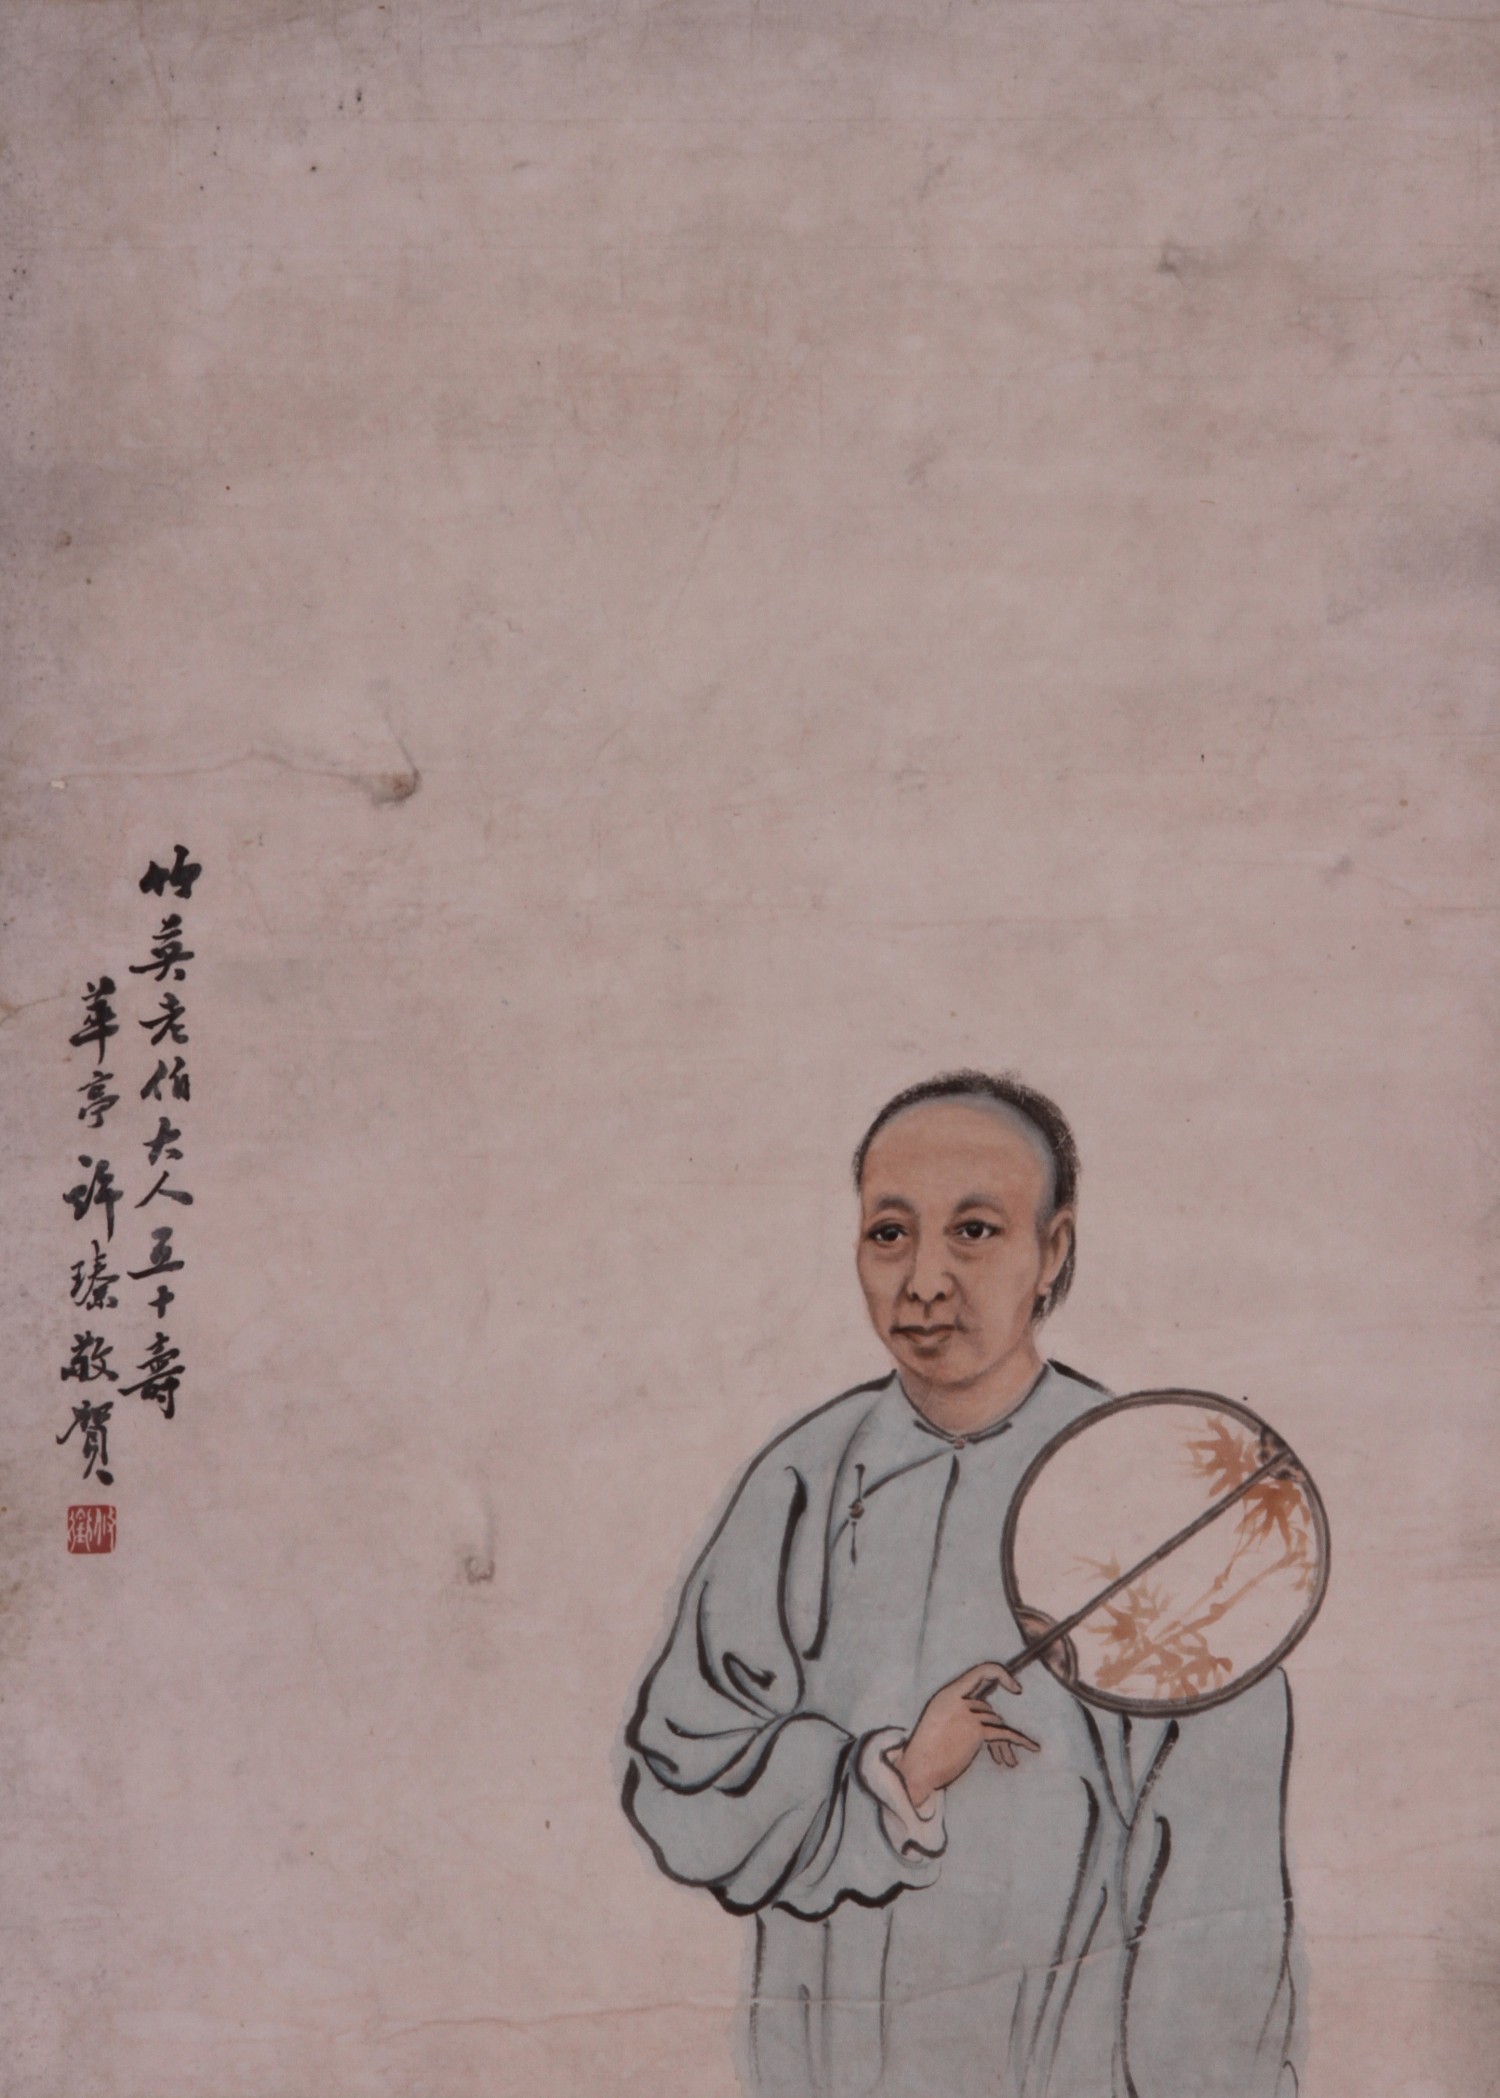 竹英老伯大人五十壽
華亭許臻敬賀